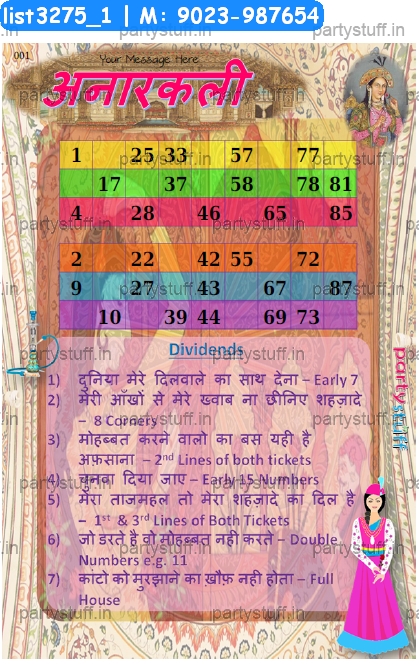 list3275_1 | M: 9023-987654
001
Your Message Here
अनारकली
1 25 33 57 77
17 37 58 78 81
4 28 46 65 85
2 22 42 55 72
9 27 43 67 87
10 39 44 69 73
Dividends
1) दुनिया मेरे दिलवाले का साथ देना – Early 7
2) मेरी आँखों से मेरे ख्वाब ना छीनिए शहज़ादे
– 8 Corners
3) मोहब्बत करने वालो का बस यही है
अफ़साना – 2nd Lines of both tickets
4) चुनवा दिया जाए – Early 15 Numbers
5) मेरा ताजमहल तो मेरे शहज़ादे का दिल है
– 1st & 3rd Lines of Both Tickets
6) जो डरते है वो मोहब्बत नही करते – Double
Numbers e.g. 11
7) कांटो को मुरझाने का ख़ौफ़ नही होता – Full
House
partystuff
partystuff.in